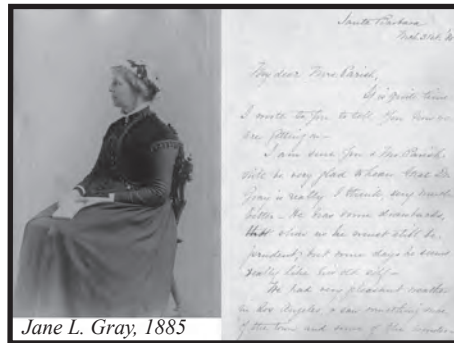 Jane L. Gray, 1885
Santa Barbara
My dear Mrs. Parish,
It is quite time
I wrote to you to tell you how we
are getting on—
I am sure you & Mr. Parish
will be very glad to hear that Dr.
Gray is really I think, very much
better— He has some drawbacks,
he must still be
prudent; but some days he seems
really like his old self—
We had very pleasant weather
in Los Angeles, & saw something more
of the town and some of the